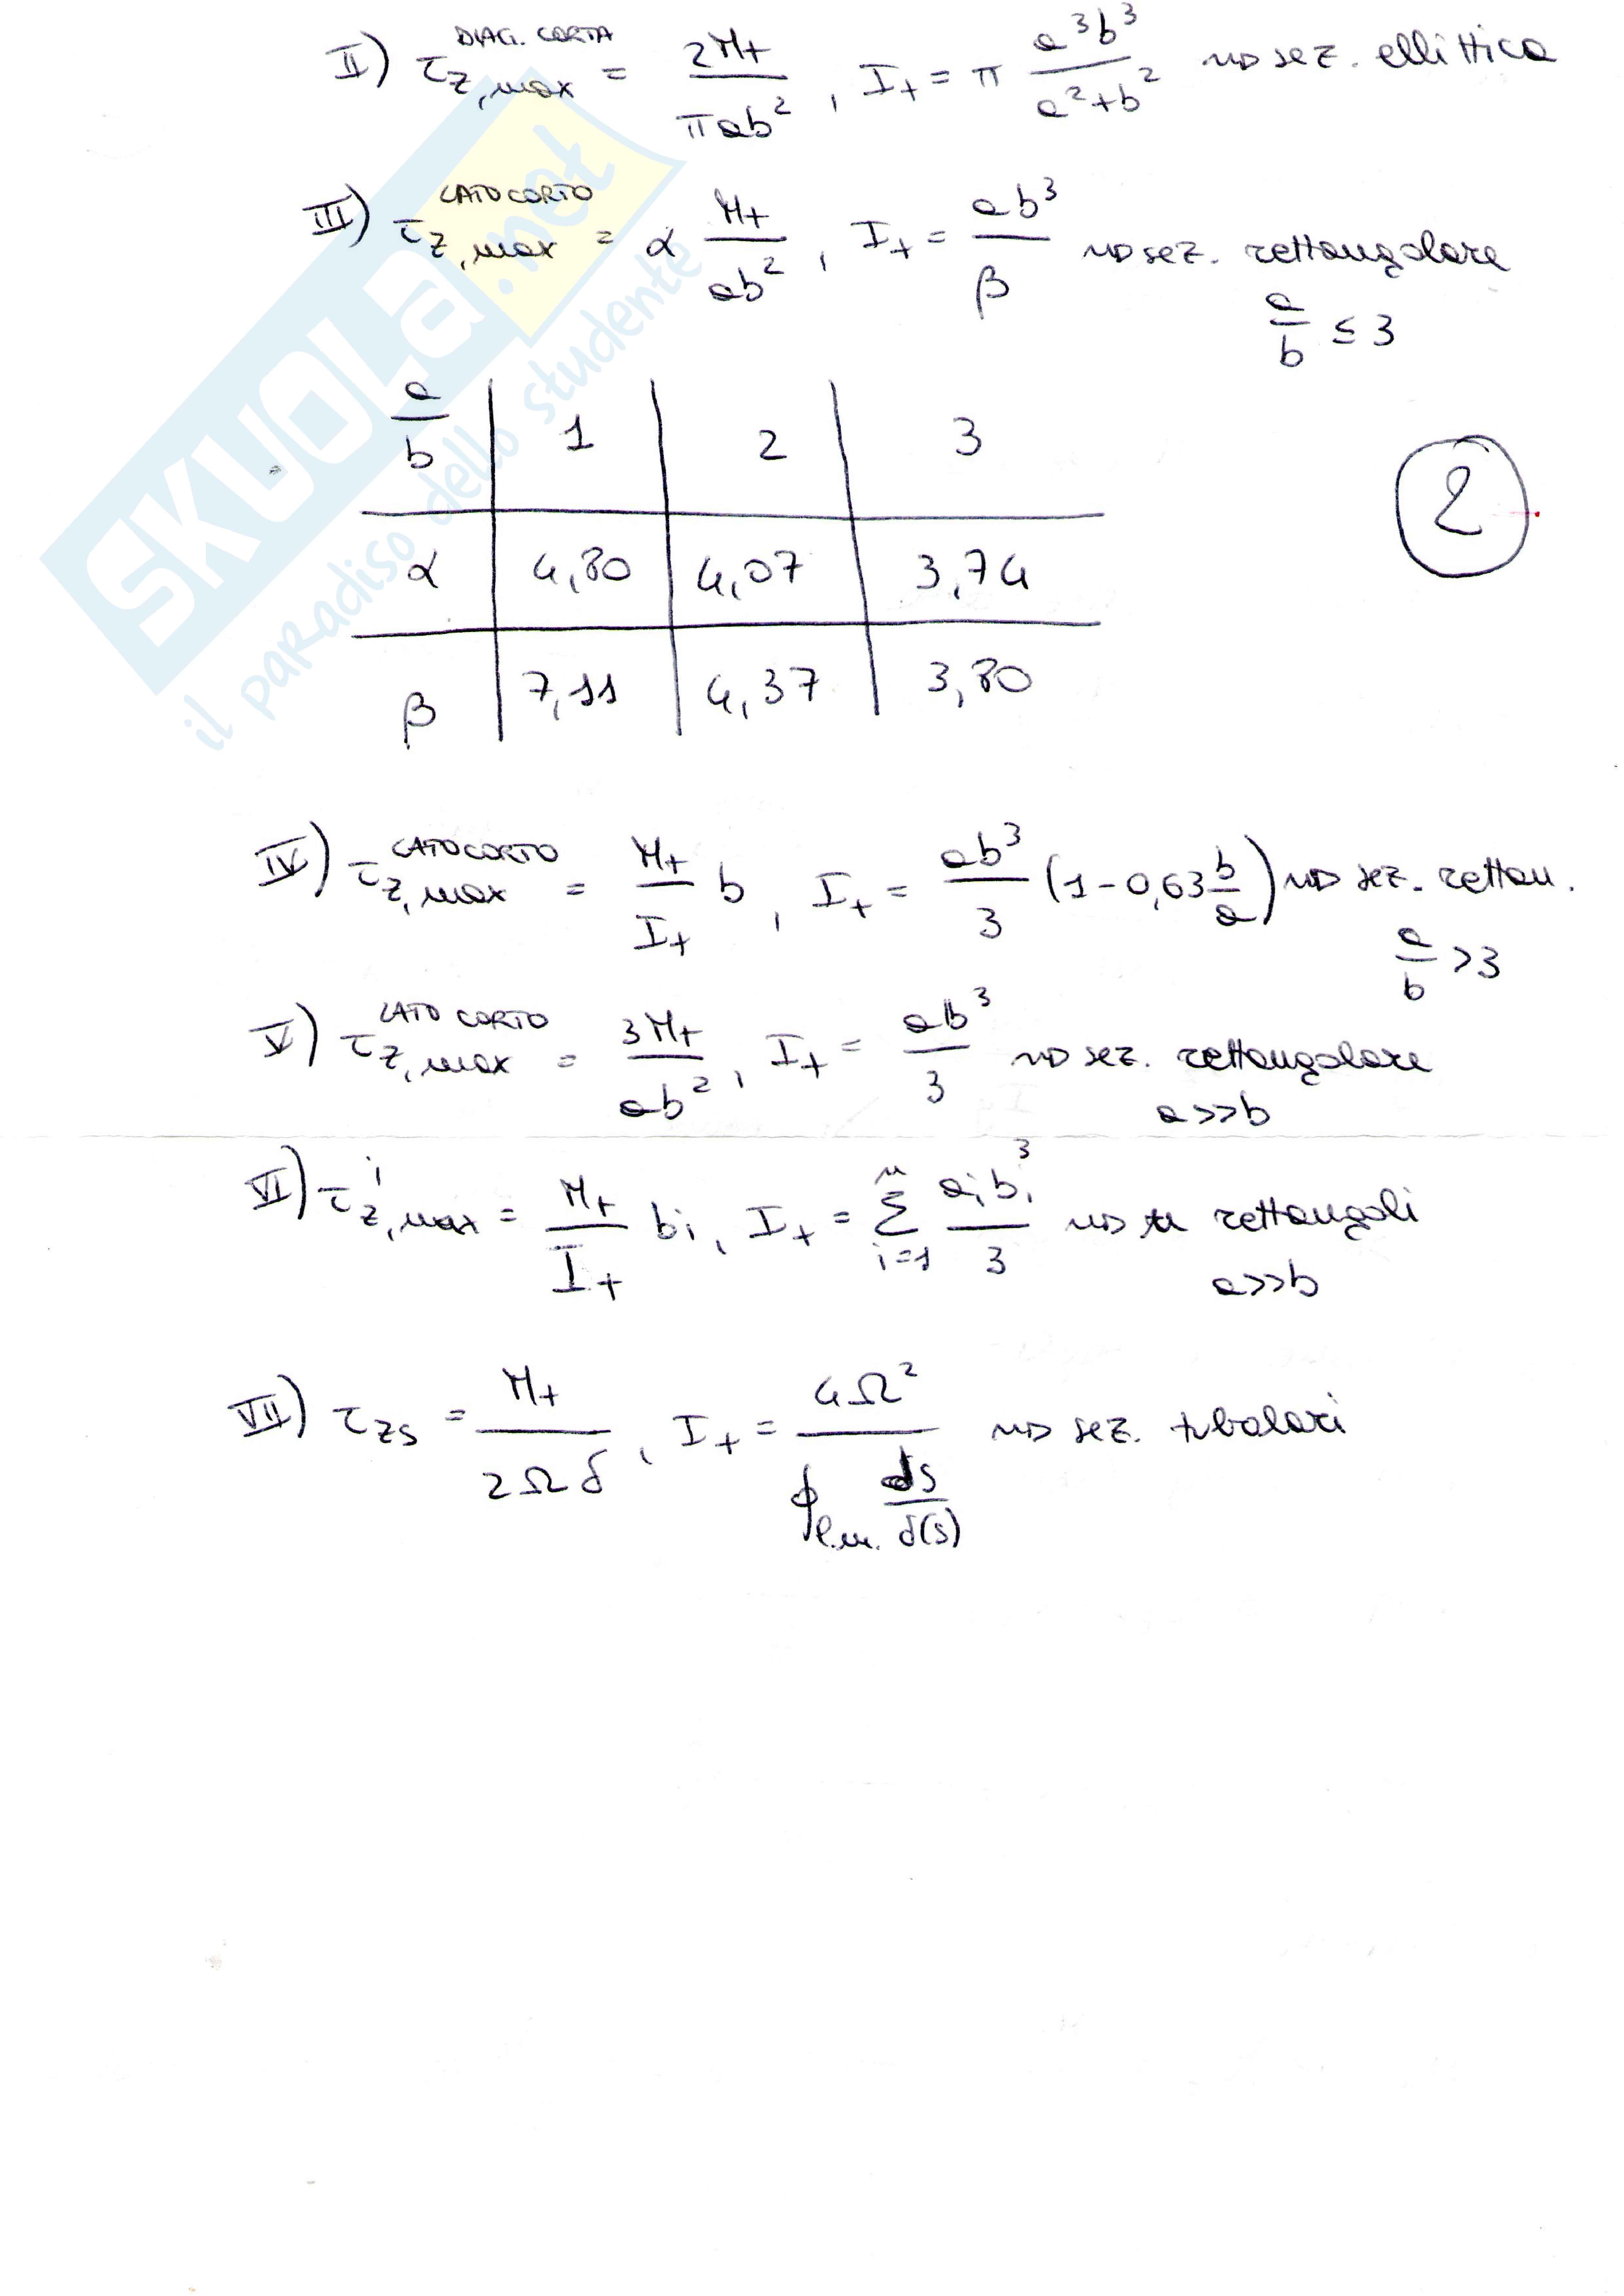 II) τ_{z,max}^{DIAG. CORTA} = 2Mt / πab², It = π a³b³ / (a²+b²) → sez. ellittica
III) τ_{z,max}^{LATO CORTO} = α Mt / ab², It = ab³ / β → sez. rettangolare
a/b ≤ 3
a/b | 1 | 2 | 3
α | 4,80 | 4,07 | 3,74
β | 7,11 | 4,37 | 3,80
2
IV) τ_{z,max}^{LATO CORTO} = Mt / It b, It = ab³ / 3 (1 - 0,63 b/a) → sez. rettan.
a/b > 3
V) τ_{z,max}^{LATO CORTO} = 3Mt / ab², It = ab³ / 3 → sez. rettangolare
a>>b
VI) τ^i_{z,max} = Mt / It bi, It = Σ_{i=1}^{n} ai bi³ / 3 → n rettangoli
a>>b
VII) τzs = Mt / 2Ωδ, It = 4Ω² / ∮_{l.m.} ds/δ(s) → sez. tubolari
SKUOLA.net
il paradiso dello studente